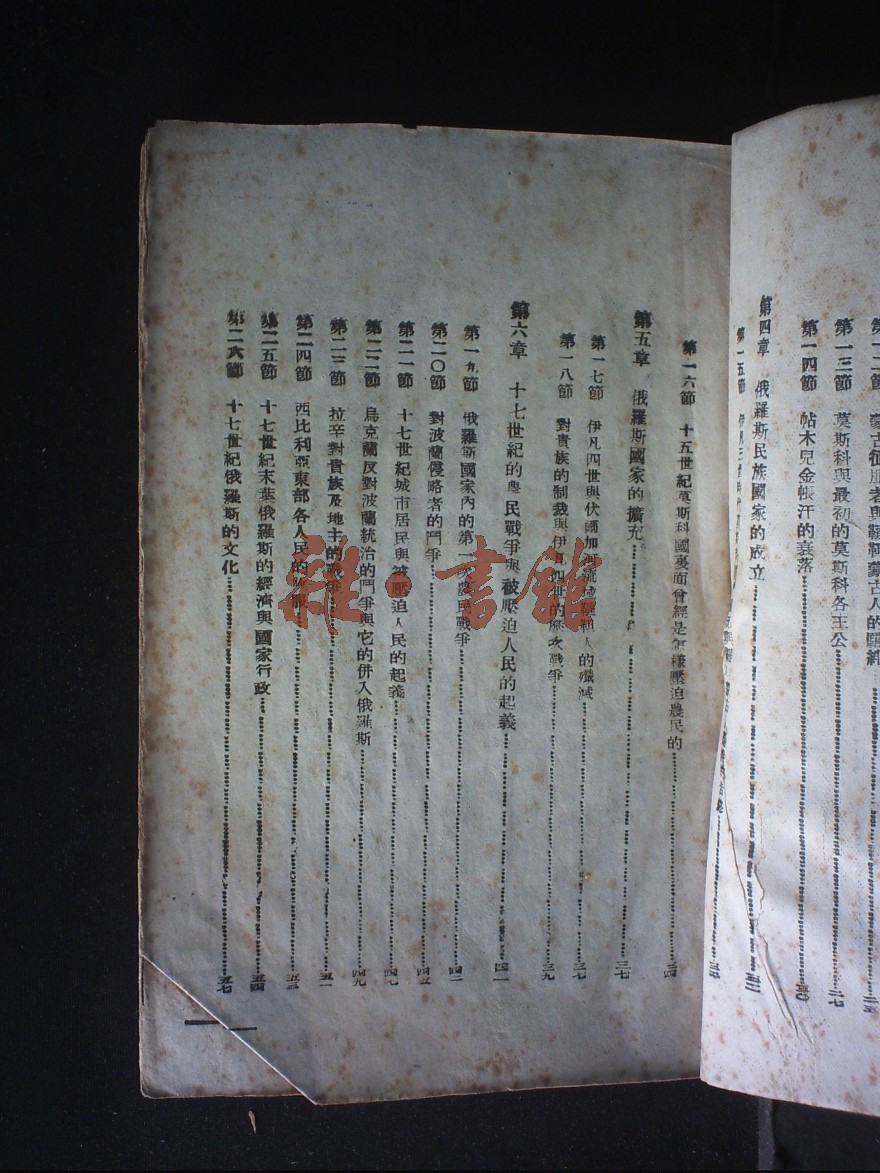 第一二節
第一三節 莫斯科與最初的莫斯科各王公……二七
第一四節 帖木兒金帳汗的衰落……三〇
第四章 俄羅斯民族國家的成立……三二
第一五節 伊凡三世
第一六節 十五世紀莫斯科國裏面曾經是怎樣壓迫農民的……三四
第五章 俄羅斯國家的擴充……三七
第一七節 伊凡四世與伏爾加河流域韃靼人的殲滅……三七
第一八節 對貴族的制裁與伊凡四世的歷次戰爭……三九
第六章 十七世紀的農民戰爭與被壓迫人民的起義……四二
第一九節 俄羅斯國家內的第一次農民戰爭……四二
第二〇節 對波蘭侵略者的鬥爭……四五
第二一節 十七世紀城市居民與被壓迫人民的起義……四七
第二二節 烏克蘭反對波蘭統治的鬥爭與它的併入俄羅斯……四九
第二三節 拉辛對貴族及地主的戰爭……五一
第二四節 西比利亞東部各人民的征服……五三
第二五節 十七世紀末葉俄羅斯的經濟與國家行政……五四
第二六節 十七世紀俄羅斯的文化……五七
一
雜·書館